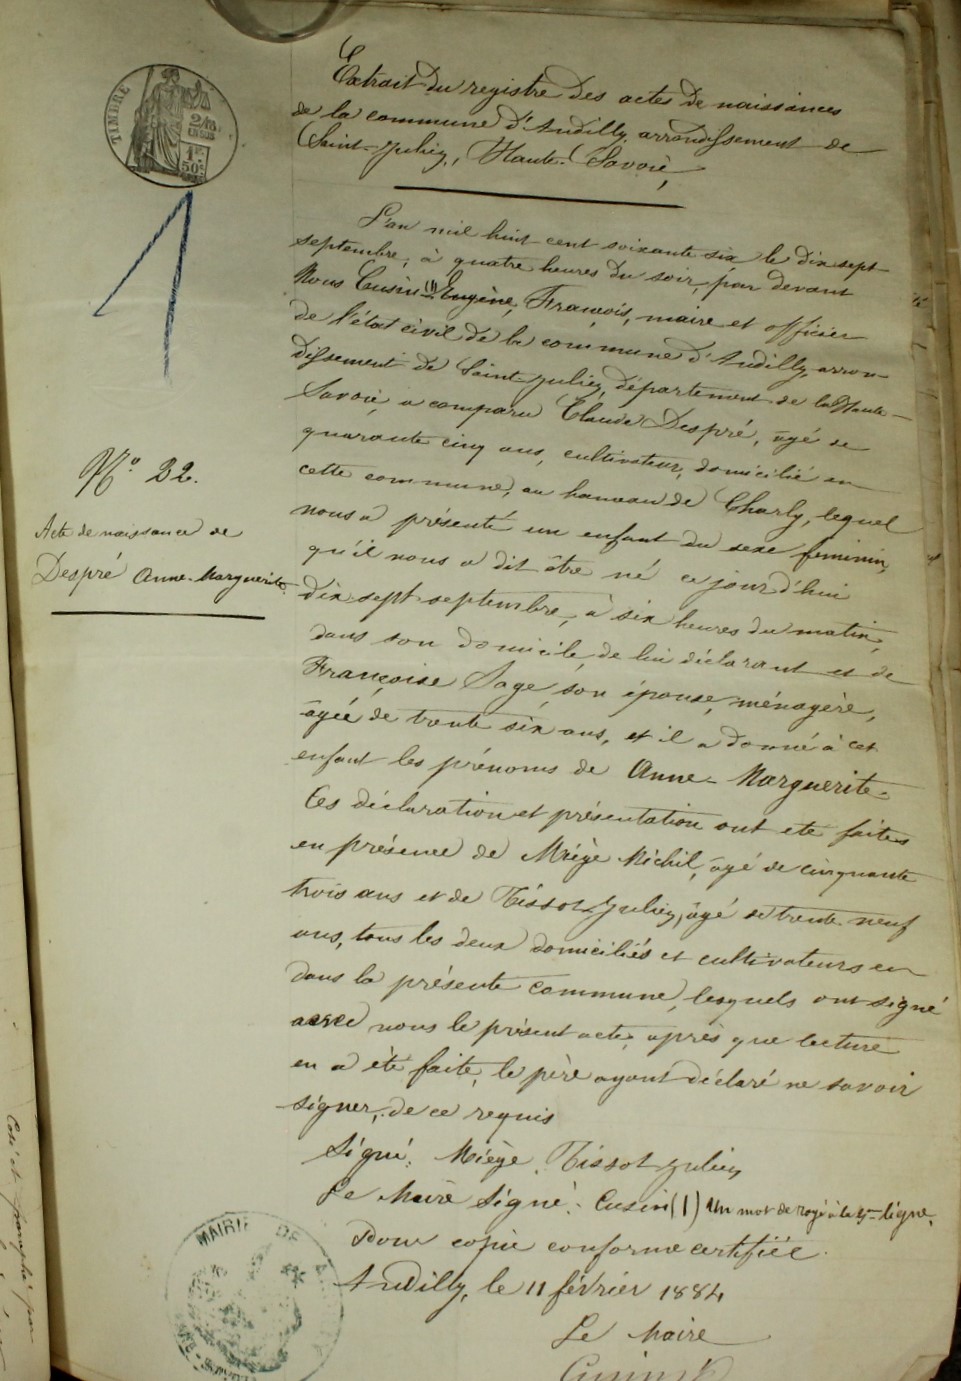 TIMBRE
2/10
EN SUS
1F
50C
Extrait du registre des actes de naissances
de la commune d'Andilly, arrondissement de
Saint-Julien, Haute-Savoie,
L'an mil huit cent soixante six le dix sept
septembre, à quatre heures du soir, par devant
Nous Cusin (1) Eugène, François, maire et officier
de l'état civil de la commune d'Andilly, arron-
dissement de Saint-Julien, département de la Haute-
Savoie, a comparu Claude Despré, âgé de
quarante cinq ans, cultivateur, domicilié en
cette commune, au hameau de Charly, lequel
nous a présenté un enfant du sexe feminin,
qu'il nous a dit être né ce jourd'hui
dix sept septembre, à six heures du matin,
dans son domicile, de lui déclarant et de
Françoise Sage, son épouse, ménagère,
âgée de trente six ans, et il a donné à cet
enfant les prénoms de Anne-Marguerite.
Ces déclaration et présentation ont eté faites
en présence de Miège Michel, âgé de cinquante
trois ans et de Tissot Julien, âgé de trente neuf
ans, tous les deux domiciliés et cultivateurs en
dans la présente commune, lesquels ont signé
avec nous le présent acte, après que lecture
en a été faite, le père ayant déclaré ne savoir
signer, de ce requis
Signé: Miège, Tissot Julien
Le Maire Signé: Cusin (1) Un mot de rayé à la 5me ligne.
Pour copie conforme certifiée.
Andilly, le 11 février 1884
Le Maire
N° 32.
Acte de naissance de
Despré Anne-Marguerite
MAIRIE DE